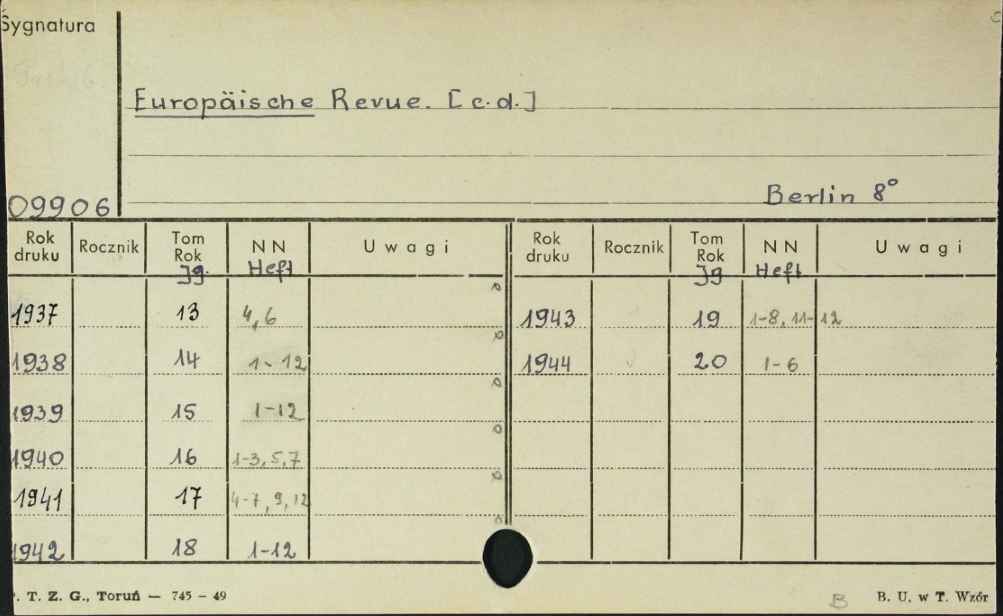 Sygnatura
Europäische Revue. [c.d.]
09906 Berlin 8°
Rok druku Rocznik Tom Rok Jg. NN Heft Uwagi Rok druku Rocznik Tom Rok Jg NN Heft Uwagi
1937 13 4,6 1943 19 1-8, 11-12
1938 14 1-12 1944 20 1-6
1939 15 1-12
1940 16 1-3,5,7
1941 17 4-7,9,12
1942 18 1-12
. T. Z. G., Toruń — 745 - 49 B B. U. w T. Wzór